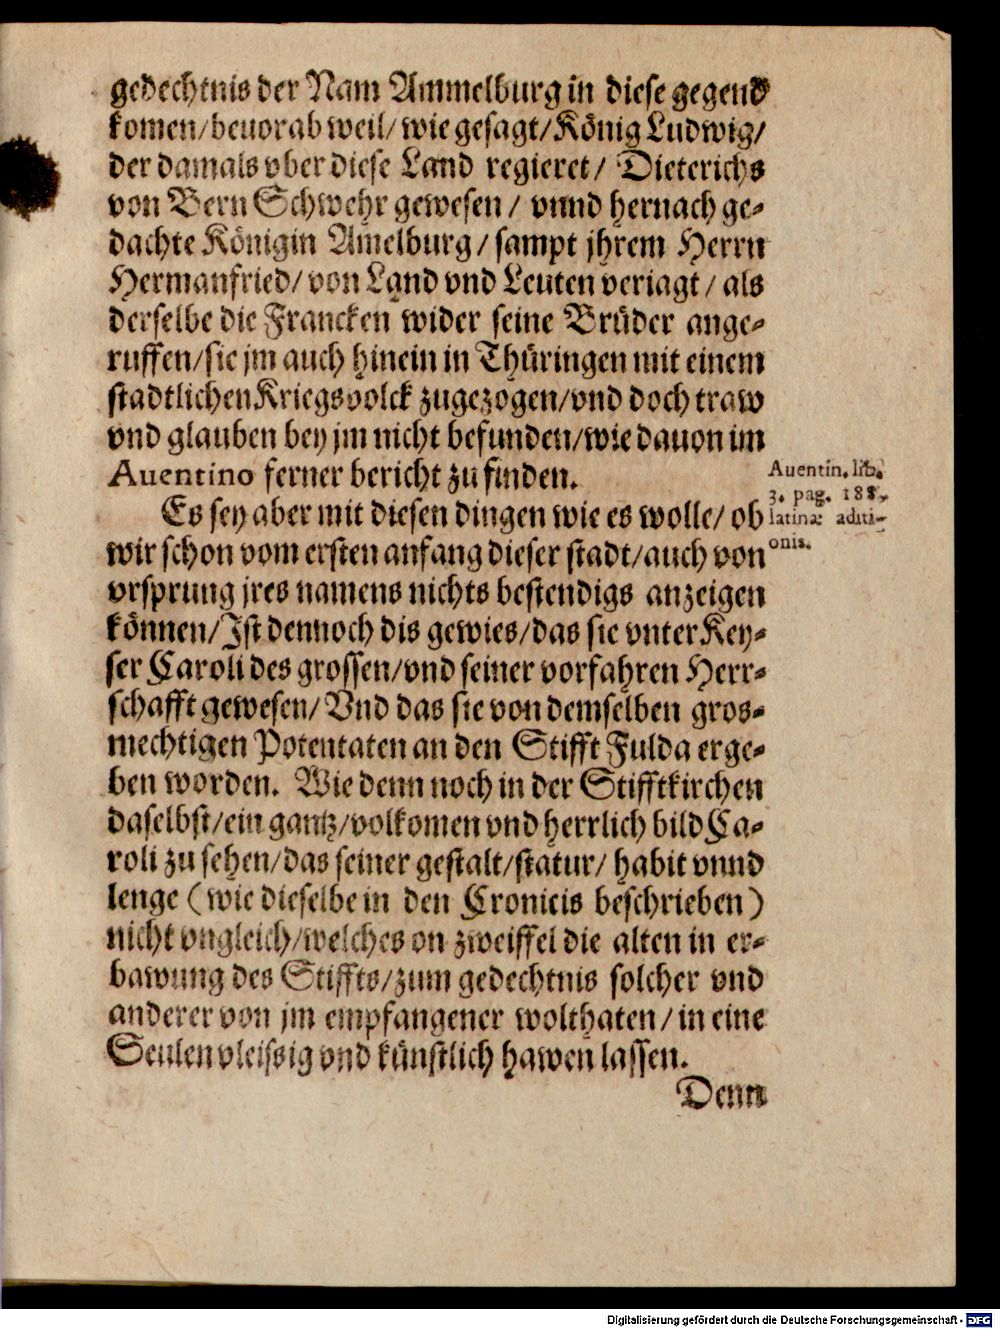 gedechtnis der Nam Ammelburg in diese gegend
komen/beuorab weil/wie gesagt/König Ludwig/
der damals vber diese Land regieret/ Dieterichs
von Bern Schwehr gewesen/ vnnd hernach ge-
dachte Königin Amelburg/sampt jhrem Herrn
Hermanfried/von Land vnd Leuten veriagt/als
derselbe die Francken wider seine Brüder ange-
ruffen/sie jm auch hinein in Thüringen mit einem
stadtlichen Kriegsvolck zugezogen/vnd doch traw
vnd glauben bey jm nicht befunden/wie dauon im
Auentino ferner bericht zu finden.
Auentin. lib.
3. pag. 188.
latinæ aditi-
onis.
Es sey aber mit diesen dingen wie es wolle/ ob
wir schon vom ersten anfang dieser stadt/auch von
vrsprung jres namens nichts bestendigs anzeigen
können/Ist dennoch dis gewies/das sie vnter Key-
ser Caroli des grossen/vnd seiner vorfahren Herr-
schafft gewesen/Vnd das sie von demselben gros-
mechtigen Potentaten an den Stifft Fulda erge-
ben worden. Wie denn noch in der Stifftkirchen
daselbst/ein gantz/volkomen vnd herrlich bild Ca-
roli zu sehen/das seiner gestalt/statur/ habit vnnd
lenge (wie dieselbe in den Cronicis beschrieben)
nicht vngleich/welches on zweiffel die alten in er-
bawung des Stiffts/zum gedechtnis solcher vnd
anderer von jm empfangener wolthaten/in eine
Seulen vleissig vnd künstlich hawen lassen.
Denn
Digitalisierung gefördert durch die Deutsche Forschungsgemeinschaft - DFG